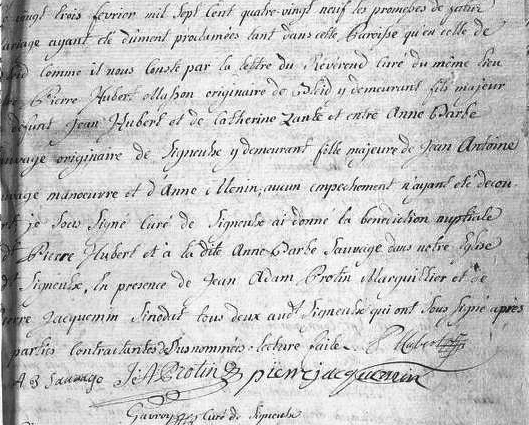 vingt trois fevrier mil sept cent quatre-vingt neuf les promesses de futur
ariage ayant eté dûment proclamées tant dans cette Paroisse qu'en celle de
comme il nous conste par la lettre du Reverend curé du même lieu
Pierre Hubert originaire de y demeurant fils majeur
defunt Jean Hubert et de Catherine et entre Anne Barbe
auvage originaire de Signeulx y demeurant fille majeure de Jean Antoine
uvage manoeuvre et d'Anne Menin, aucun empechement n'ayant eté decou-
je sous signé curé de Signeulx ai donné la benediction nuptiale
dt Pierre Hubert et à la dite Anne Barbe Sauvage dans notre Eglise
dt Signeulx, en presence de Jean Adam Protin Marguillier et de
ierre Jacquemin Sinodal tous deux audt Signeulx qui ont sous signé après
parties contractantes susnommées lecture faite. P Hubert
A B Sauvage J A Protin pierre jacquemin
curé de Signeulx